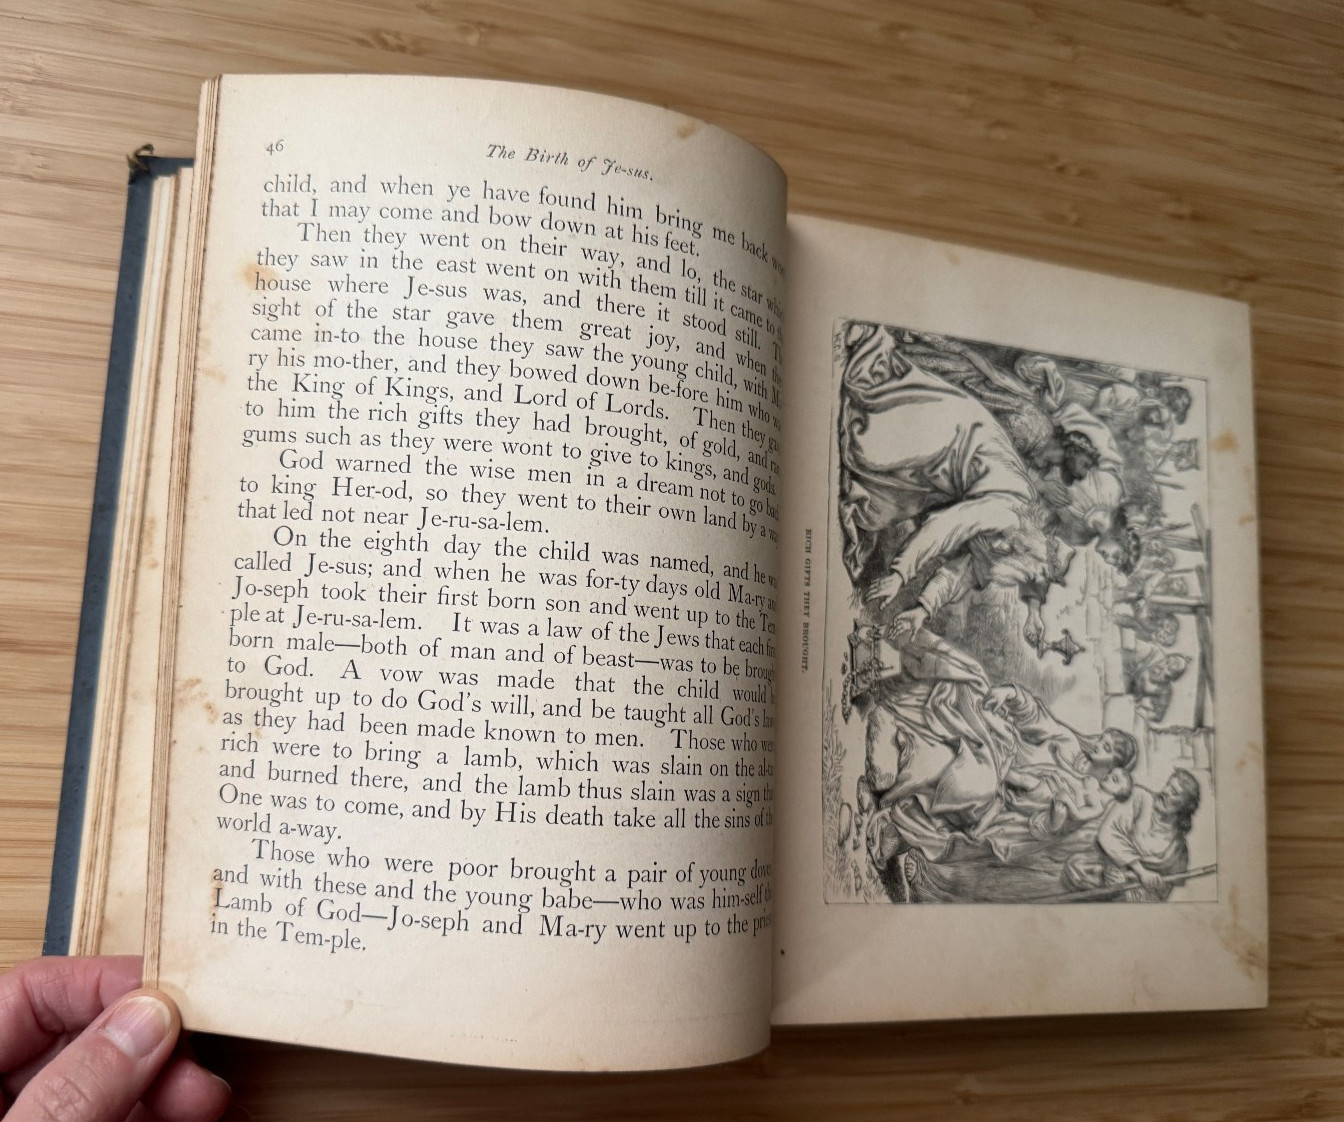 46
The Birth of Je-sus.
child, and when ye have found him bring me back
that I may come and bow down at his feet.
Then they went on their way, and lo, the star
they saw in the east went on with them till it came to
house where Je-sus was, and there it stood still.
sight of the star gave them great joy, and when
came in-to the house they saw the young child, with
ry his mo-ther, and they bowed down be-fore him who
the King of Kings, and Lord of Lords. Then they
to him the rich gifts they had brought, of gold, and
gums such as they were wont to give to kings, and gods.
God warned the wise men in a dream not to go
to king Her-od, so they went to their own land by a
that led not near Je-ru-sa-lem.
On the eighth day the child was named, and he
called Je-sus; and when he was for-ty days old Ma-ry
Jo-seph took their first born son and went up to the
ple at Je-ru-sa-lem. It was a law of the Jews that each
born male—both of man and of beast—was to be
to God. A vow was made that the child would
brought up to do God's will, and be taught all God's
as they had been made known to men. Those who
rich were to bring a lamb, which was slain on the
and burned there, and the lamb thus slain was a sign
One was to come, and by His death take all the sins of
world a-way.
Those who were poor brought a pair of young
and with these and the young babe—who was him-self
Lamb of God—Jo-seph and Ma-ry went up to the
in the Tem-ple.
RICH GIFTS THEY BROUGHT.